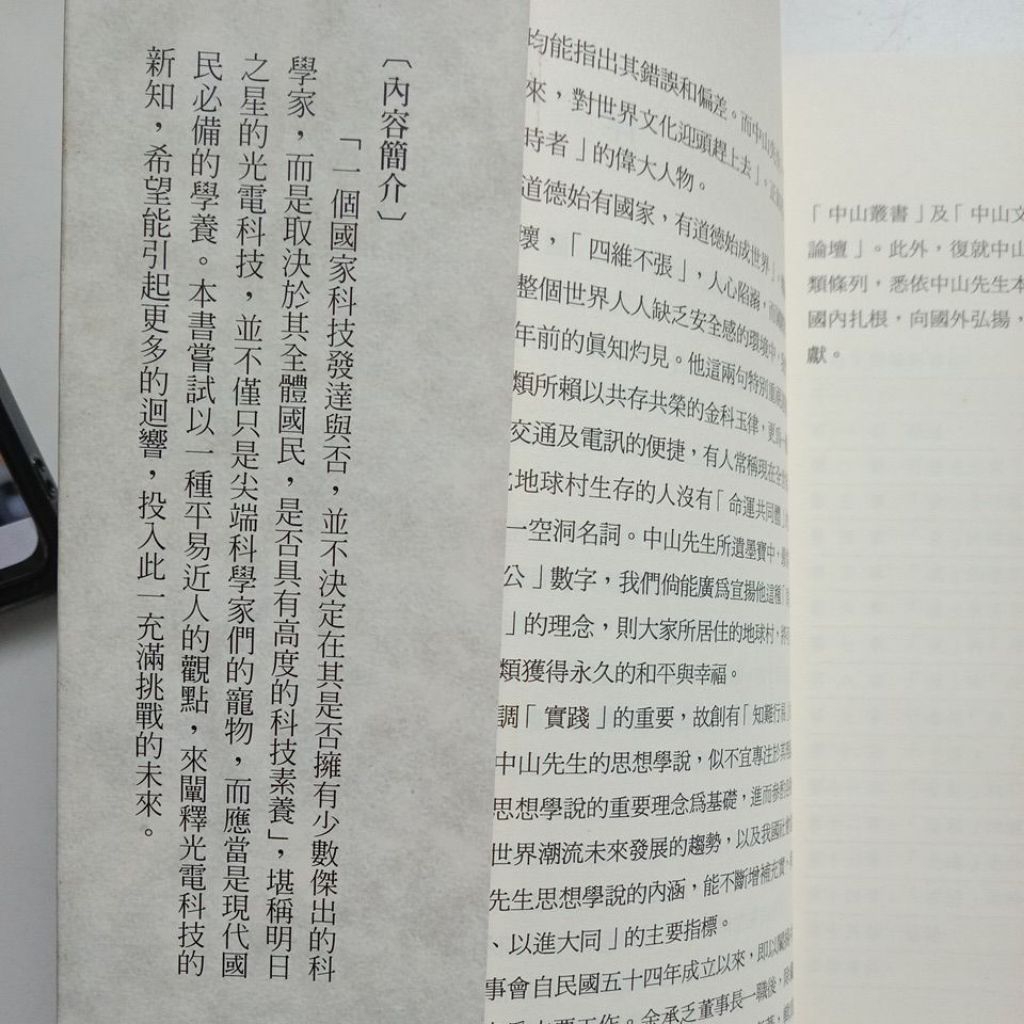 〔內容簡介〕
「一個國家科技發達與否，並不決定在其是否擁有少數傑出的科
學家，而是取決於其全體國民，是否具有高度的科技素養」，堪稱明日
之星的光電科技，並不僅只是尖端科學家們的寵物，而應當是現代國
民必備的學養。本書嘗試以一種平易近人的觀點，來闡釋光電科技的
新知，希望能引起更多的迴響，投入此一充滿挑戰的未來。
均能指出其錯誤和偏差。而中山
來，對世界文化迎頭趕上去」。
時者」的偉大人物。
道德始有國家，有道德始成世界」。
壞，「四維不張」，人心陷溺，
整個世界人人缺乏安全感的環境中，
年前的眞知灼見。他這兩句特別
類所賴以共存共榮的金科玉律，更
交通及電訊的便捷，有人常稱現在全
地球村生存的人沒有「命運共同體
一空洞名詞。中山先生所遺墨寶中，
公」數字，我們倘能廣爲宣揚他這種
」的理念，則大家所居住的地球村，
類獲得永久的和平與幸福。
調「實踐」的重要，故創有「知難行易
中山先生的思想學說，似不宜專注於
思想學說的重要理念爲基礎，進而參
世界潮流未來發展的趨勢，以及我國社會
先生思想學說的內涵，能不斷增補充實，
、以進大同」的主要指標。
事會自民國五十四年成立以來，即以闡
工作。余承乏董事長一職後，
「中山叢書」及「中山文
論壇」。此外，復就中山
類條列，悉依中山先生本
國內扎根，向國外弘揚，
獻。